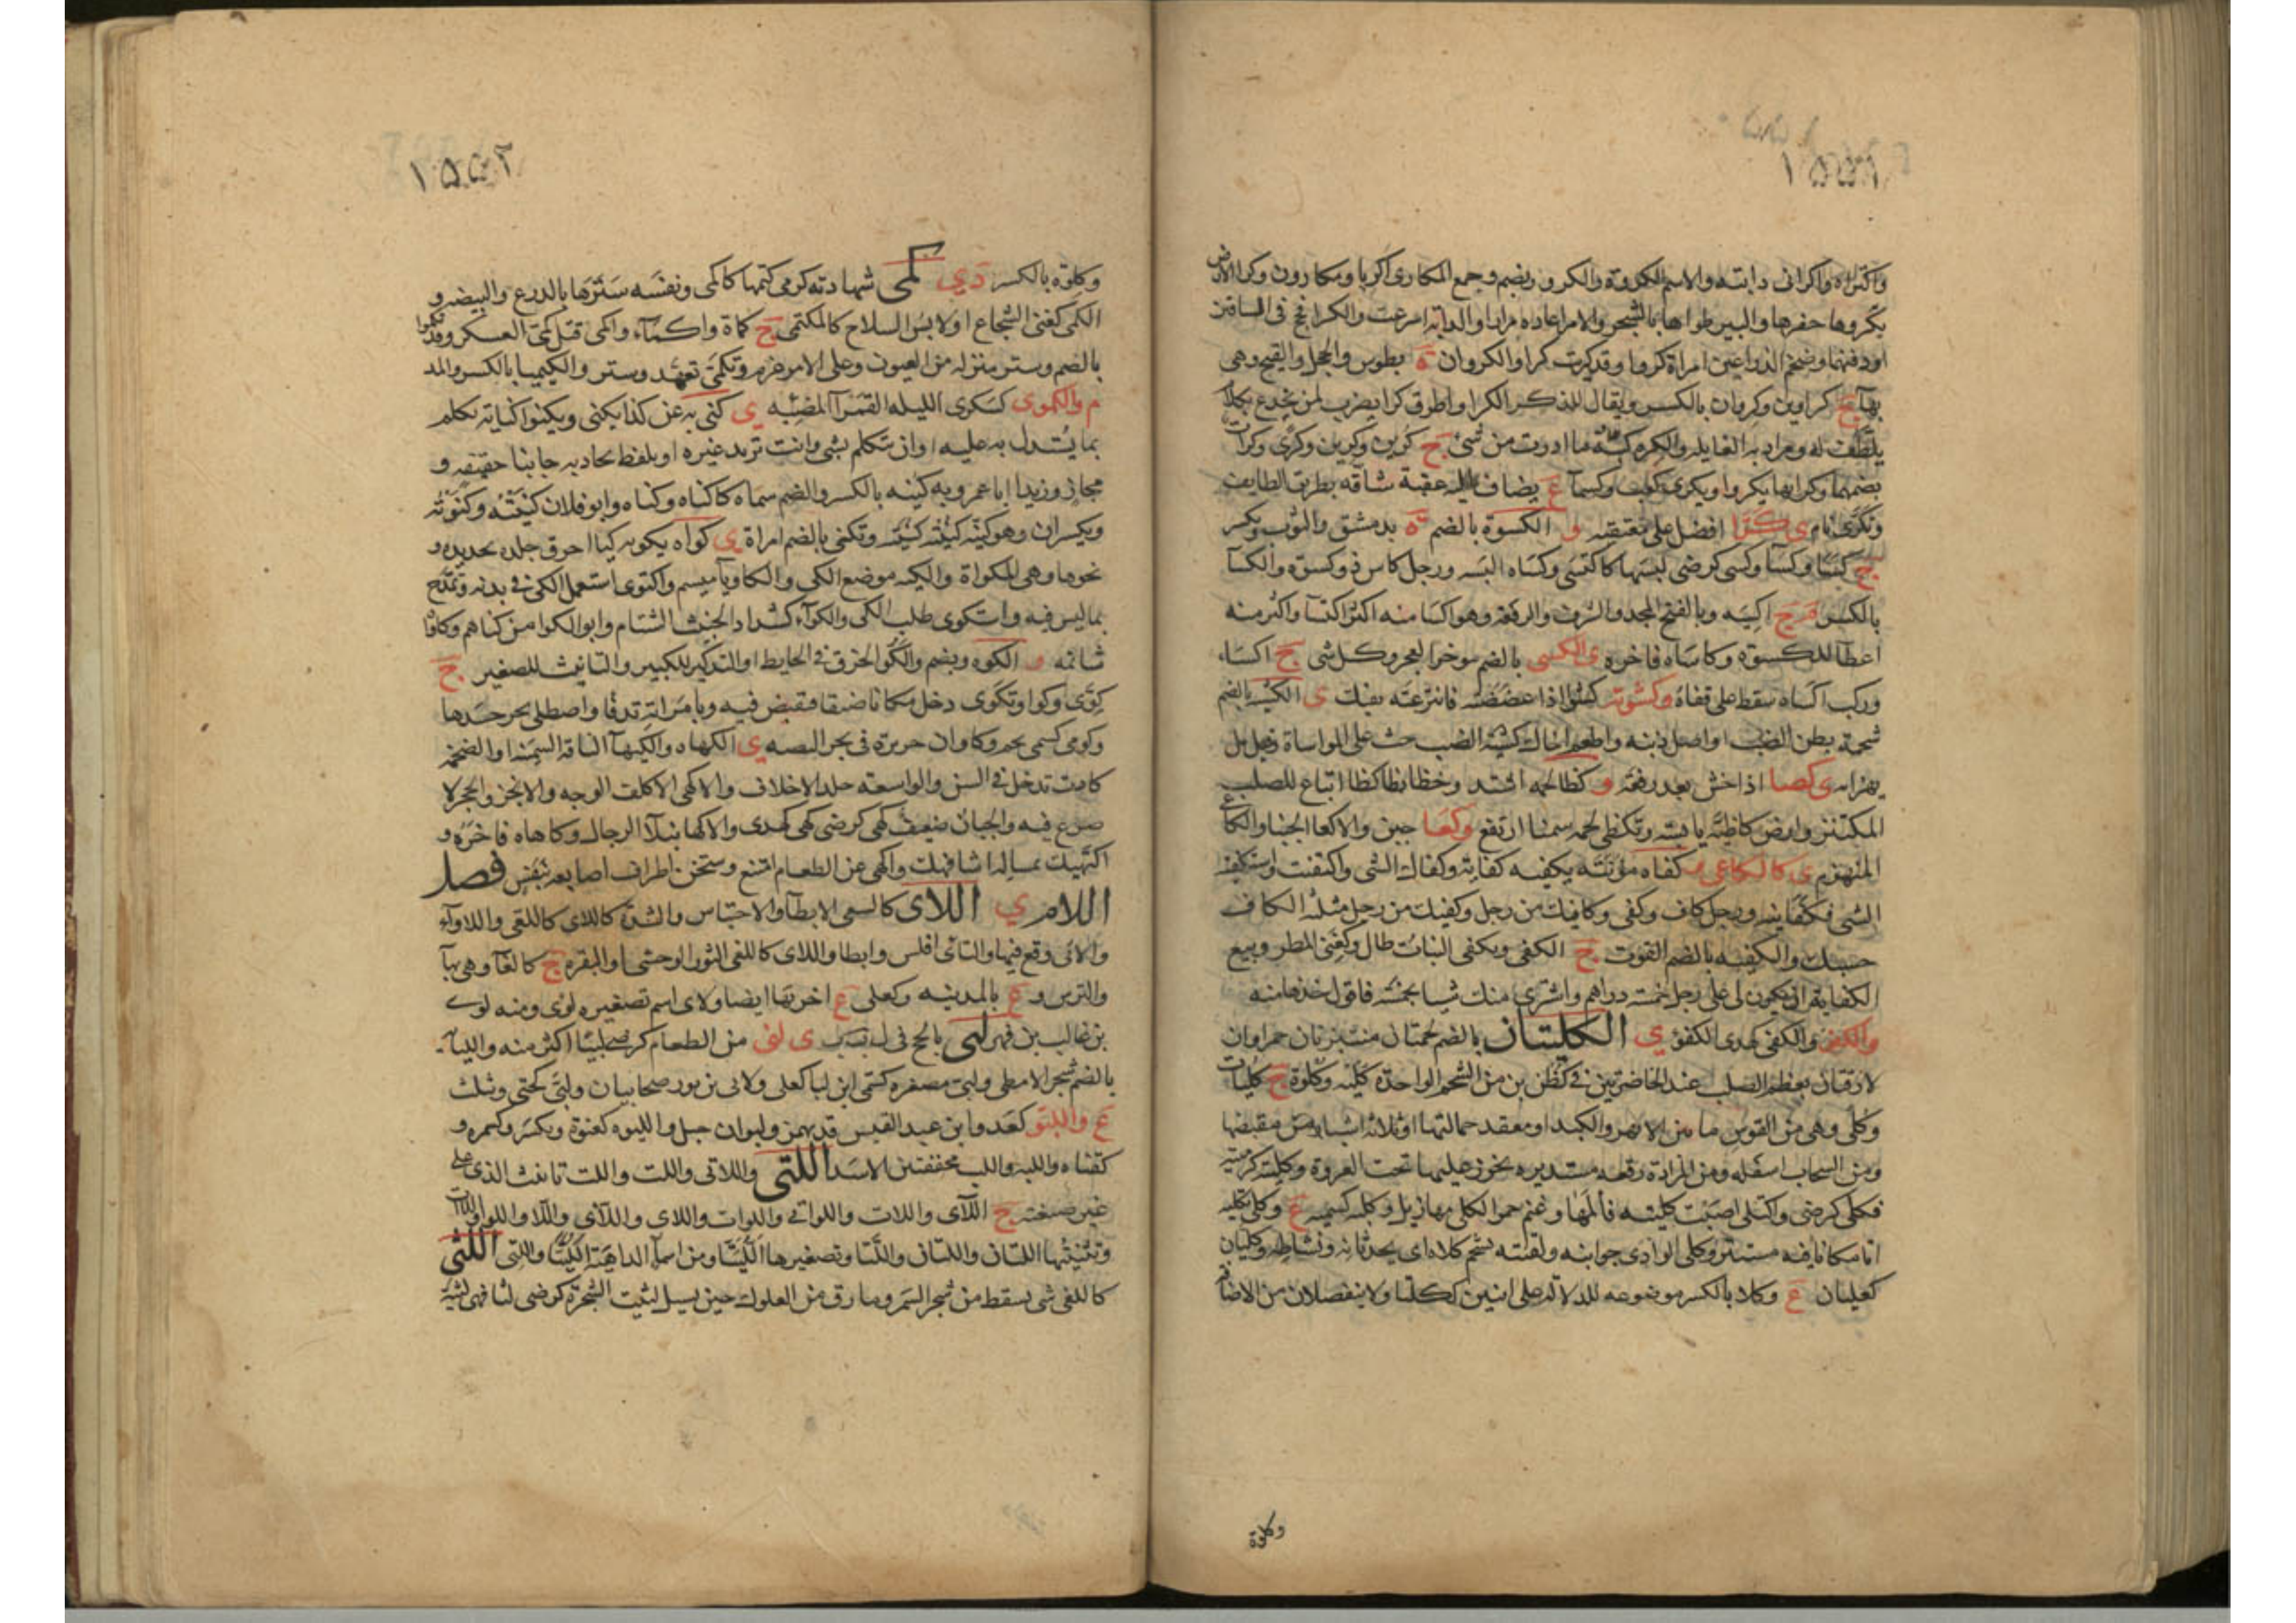 ١٥٥١
واكتراه واكرانى دابته والاسم الكروة والكرو ويضم وجمع المكارى اكريا ومكارون وكرا الارض
يكروها حفرها والبير طواها بالشجر والامر اعاده مرارا والدابة اسرعت والكرا فحج فى الساقين
او دقتهما وضخم الذراعين امراة كروا وقد كريت كرا والكروان ة بطوس والحجل والقبج وهى
بهاء ج كراوين وكروان بالكسر ويقال للذكر الكرا واطرق كرا يضرب لمن يخدع بكلام
يلطف له ويراد به الغايلة والكره كثبة ما ادرت من شى ج كرين وكرين وكرى وكرات
بضمهما وكرا بها يكروا ويكرى كوفت وكسماء ع يضاف اليه عقبة شاقة بطريق الطايف
وتكرى نام ى كزا افضل على معتقيه و الكسوة بالضم ة بدمشق والثوب ويكسر
ج كسا وكسآ وكسى كرضى لبسها كاكتسى وكساه البسه ورجل كاس ذو كسوة والكسآ
بالكسر م ج اكسيه وبالفتح المجد والشرف والرفعة وهو اكسا منه اكثر اكتسآ واكثر منه
اعطآ للكسوة وكاساه فاخره ى الكسى بالضم موخر العجز وكل شى ج اكساء
وركب اكساه سقط على قفاه و كشوته كشوا اذا عضضته فانتزعته بفيك ى الكشيه بالضم
شحمة بطن الضب او اصل ذنبه واطعم اخاك كشية الضب حث على المواساة وقيل بل
يهزا به ى كصا اذا خش بعد رفعة و كظا لحمه اشتد وخظا بظا كظا اتباع للصلب
المكتنز وارض كاظية يابسة وتكظى لحمه سمنا ارتفع و كعا جبن والاكعا الجبنا والكاع
المنهزم ى كالكاعى ى كفاه مؤنته يكفيه كفاية وكفاك الشى واكتفيت واستكفيته
الشى فكفانيه ورجل كاف وكفى وكافيك من رجل وكفيك من رجل مثلثة الكاف
حسبك والكفيه بالضم القوت ج الكفى وتكفى النبات طال وكغنى المطر وبيع
الكفاية ان يكون لى على رجل خمسة دراهم واشترى منك شيا بخمسة فاقول خذها منه
والكفو والكفى كهدى الكفؤ ى الكليتان بالضم لحمتان منتبرتان حمراوان
لازقتان بعظم الصلب عند الخاصرتين فى كظرين من الشحم الواحدة كلية وكلوة ج كليات
وكلى وهى من القوس ما بين الابهر والكبد او معقد حمالتها او ثلاثة اشبار من مقبضها
ومن السحاب اسفله ومن المزادة رقعة مستديرة تخرز عليها تحت العروة وكليته كرميته
فكلى كرضى واكتلى اصبت كليته فآلمها وغنم حمرا الكلى مهازيل وكليه كسميه ع وكلى تكليه
اتا مكانا فيه مستتر وكلى الوادى جوانبه ولقيته بشحم كلاه اى بحدثانه ونشاطه وكليان
كعليان ع وكلا بالكسر موضوعه للدلالة على اثنين ككلتا ولا ينفصلان من الاضافة
وكلوة
١٥٥٢
وكلوة بالكسر د ى كمى شهادته كرمى كتمها كاكمى ونفسه سترها بالدرع والبيضه و
الكمى كغنى الشجاع او لابس السلاح كالمكتمى ج كماة واكماء واكمى قتل كمى العسكر وقد تكموا
بالضم وستر منزله من العيون وعلى الامر عزم وتكمى تعهد وستر والكيميا بالكسر والمد
م والكموى كسكرى الليله القمرآ المضيئه ى كنى به عن كذا يكنى ويكنوا كناية تكلم
بما يستدل به عليه او ان تتكلم بشى وانت تريد غيره او بلفظ يحاذبه جانبا حقيقه و
مجاز وزيدا ابا عمرو به كينه بالكسر والضم سماه كاكناه وكناه وابو فلان كنيته وكنوته
ويكسران وهو كنيه كنيته كنيته وتكنى بالضم امراة ى كواه يكويه كيا احرق جلده بحديده و
نحوها وهى المكواة والكيه موضع الكى والكاويآ ميسم واكتوى استعمل الكى فى بدنه وتمدح
بما ليس فيه واستكوى طلب الكى والكوآء كشداد الخبيث الشتام وابو الكوا من كناهم وكاواه
شاتمه و الكوه ويضم والكو الخرق فى الحايط او التذكير للكبير والتانيث للصغير ج
كوى وكوا وتكوى دخل مكانا ضيقا فتقبض فيه وبامراته تدفا واصطلى بحر جسدها
وكوى كسمى نجم وكاوان جزيرة فى بحر البصره ى الكهاه والكهيآ الناقة السمينة او الضخمة
كادت تدخل فى السن والواسعة جلد الاخلاف والاكهى الاكلف الوجه والابخر والحجر لا
صدع فيه والجبان ضعيف كهى كرضى كهى كهدى والاكها نبلآ الرجال وكاهاه فاخره و
اكتهيك بمساله اشافهك واكهى عن الطعام امتنع وسخن اطراف اصابعه بنفس فصل
اللام ى اللاى كالسعى الابطآ والاحتباس والشدة كاللاى كاللقى واللاوآء
والاى وقع فيها والتاى افلس وابطا واللاى كاللفى الثور الوحشى او البقره ج كالعآ وهى بهآ
والترس و ع بالمدينه وكعلى ع اخر بها ايضا ولاى اسم تصغيره لوى ومنه لوى
بن غالب بن فهر لبى بالحج فى ل ب ب ى لبى من الطعام كرضى لبيا اكثر منه واللبايه
بالضم شجر الامطى ولبى مصغره كسمى ابن لبا كعلى ولابى بن بور صحابيان ولبى كحتى ويثلث
ع واللبو كعدو ابن عبد القيس قد يهمز ولبوان جبل واللبوه كعنوة ويكسر وكسمره و
كقناه واللبه واللب مخففتين لاسد اللتى واللاتى واللت واللت تانيث الذى على
غير صيغته ج اللآى واللات واللواتى واللوات واللاى واللآى واللا واللوا واللاات
وتثنيتها اللتان واللتان واللتا وتصغيرها اللتيا ومن اسمآ الداهية اللتيا والتى اللثى
كاللفى شى يسقط من شجر السمر وما رق من العلوك حين يسيل لثيت الشجرة كرضى لثا فهى لثية